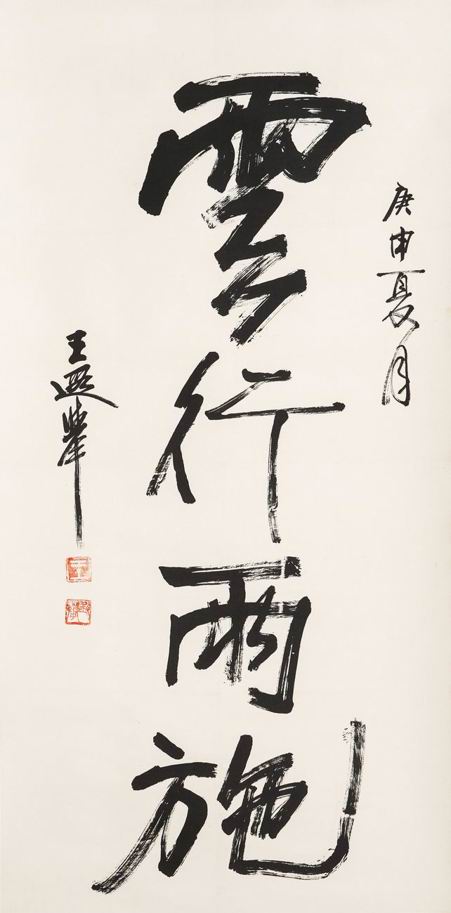 庚申夏月
雲行雨施
王遐舉